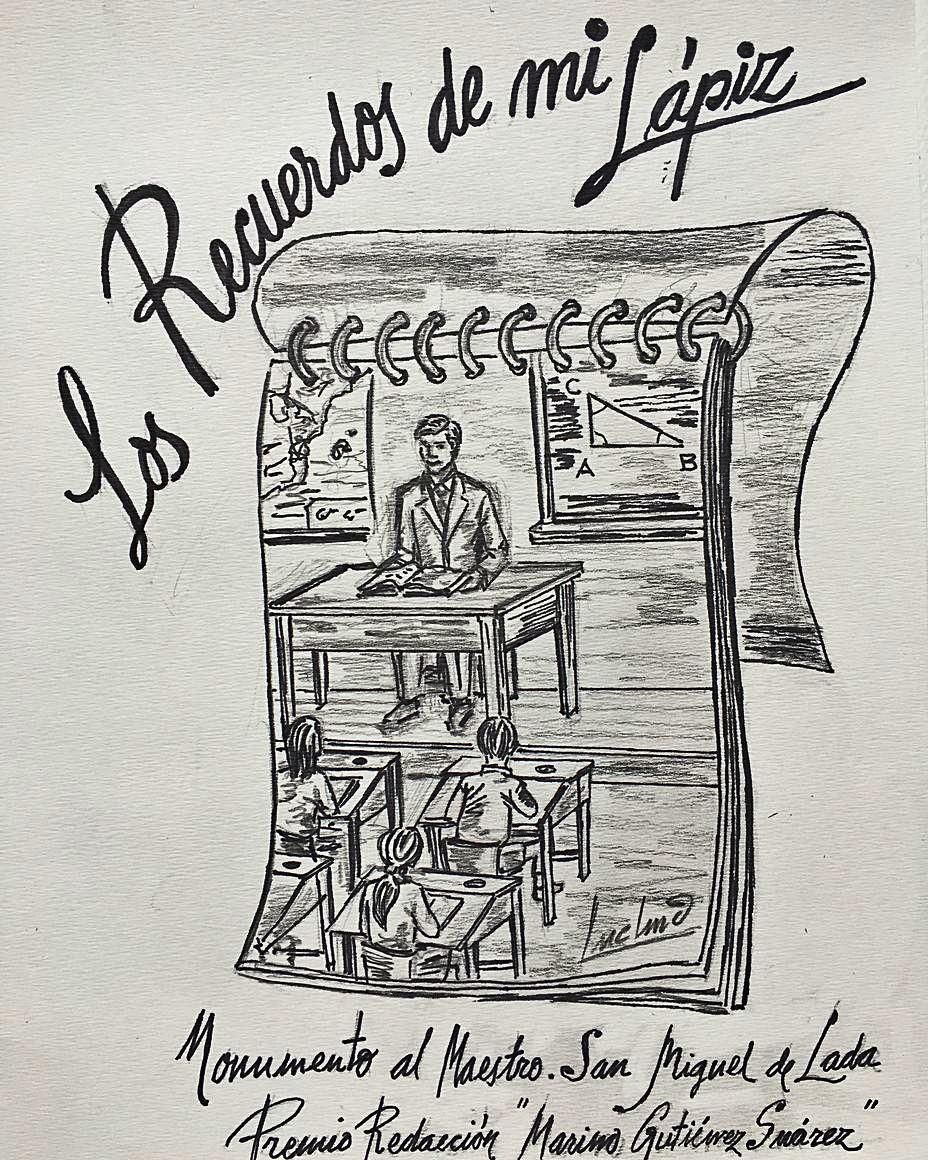 Los Recuerdos de mi Lápiz
C
A B
Luelmo
Monumento al Maestro. San Miguel de Lada
Premio Redacción "Marino Gutiérrez Suárez"